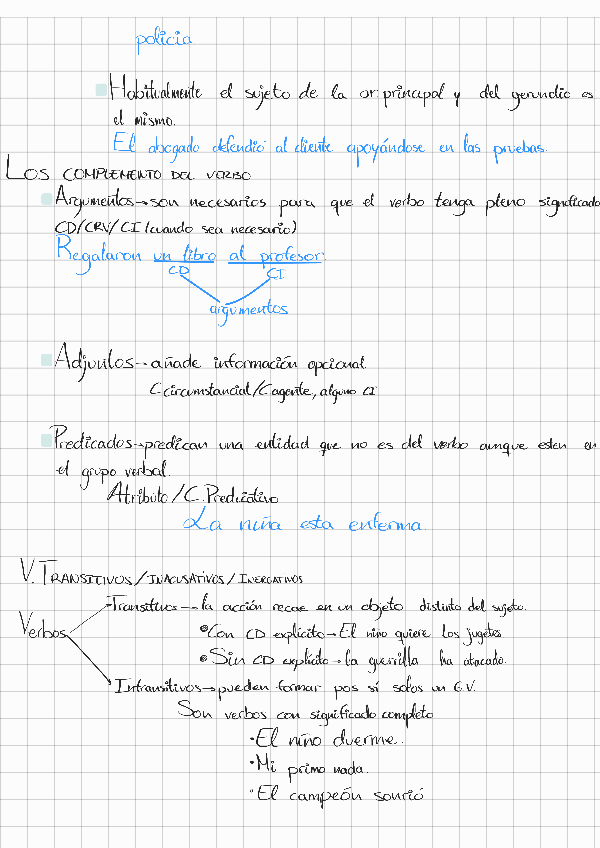 policia
Habitualmente el sujeto de la or. principal y del gerundio es
el mismo.
El abogado defendió al cliente apoyándose en las pruebas.
LOS COMPLEMENTO DEL VERBO
Argumentos→son necesarios para que el verbo tenga pleno significado
CD/CRV/CI (cuando sea necesario)
Regalaron un libro al profesor.
CD CI
argumentos
Adjuntos→añade información opcional
C.circumstancial/C agente, alguno CI
Predicados→predican una entidad que no es del verbo aunque esten en
el grupo verbal.
Atributo/C.Predicativo
La niña esta enferma.
V. TRANSITIVOS/INACUSATIVOS/INERGATIVOS
Transitivos→la acción recae en un objeto distinto del sujeto.
Verbos
•Con CD explícito→El niño quiere los jugetes
•Sin CD explícito→la guerrilla ha atacado.
Intransitivos→pueden formar pos sí solos un G.V.
Son verbos con significado completo
•El niño duerme.
•Mi primo nada.
•El campeón sonrió